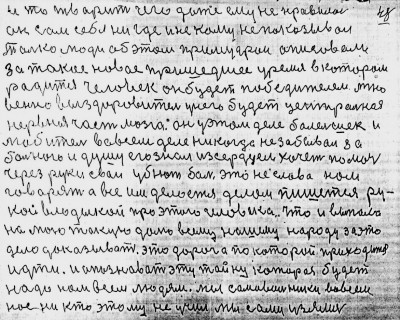 и то творит чего даже ему не нравилос 48
он сам себя ни где и не кому не показывал
Только люди об этом примудрои описовали
за такое новое пришедшее уремя в котором
радится человек он будет победителем. мно
венно выздоровит и у него будет централная
нервная част мозга. он у этом деле балельшек и
любител во всем деле никогда не забывал за
болного и душу его знал и сердцем хочет помоч
через руки свои убиют бол. это не слова нам
говарят а все им делается делом пишется ру-
кой владыкой про этого человека. что и выпало
на мою такую долю всему нашему народу за это
дело доказыват. это дорога по которой приходится
идти. и ознават эту тайну которая будет
надо нам всем людям. мы самавитники во всем
нас ни кто этому не учил мы сами узялис